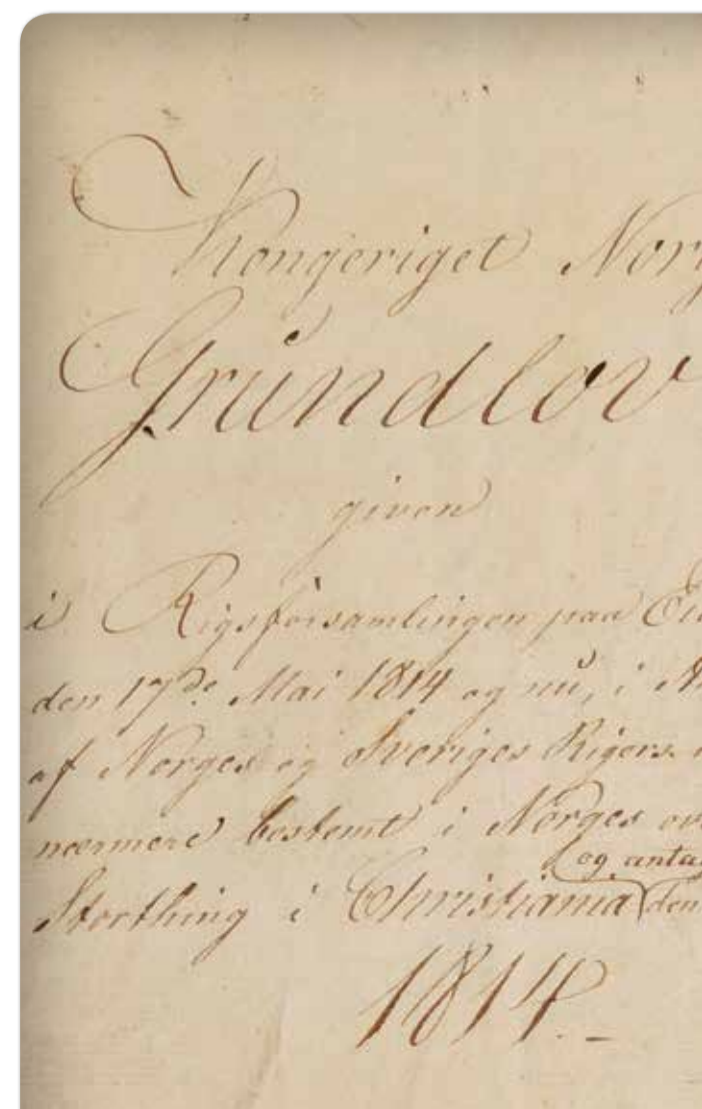 Kongeriget Norg
Grundlov
given
i Rigsforsamlingen paa Eid
den 17de Mai 1814 og nu, i An
af Norges og Sveriges Rigers
nærmere bestemt i Norges ov
og anta
Storthing i Christiania den
1814.-